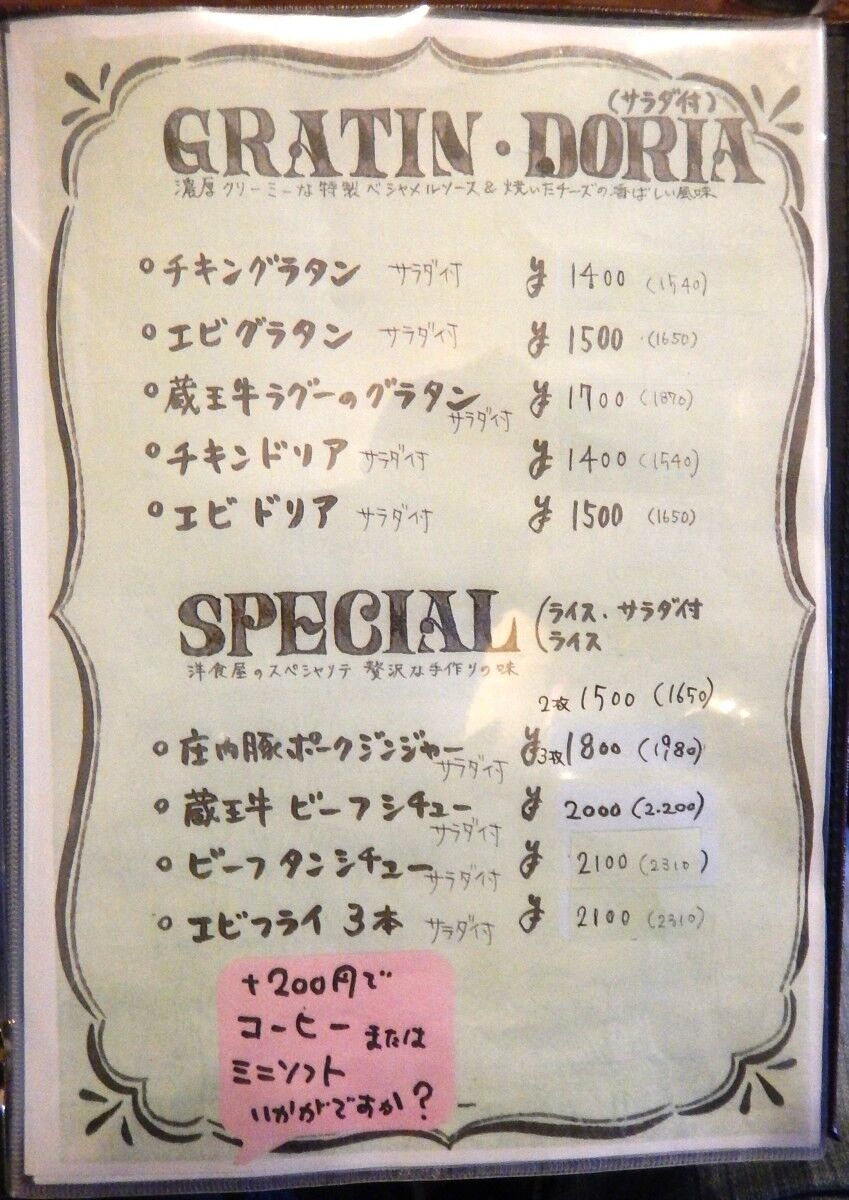 (サラダ付)
GRATIN・DORIA
濃厚クリーミーな特製ベシャメルソース&焼いたチーズの香ばしい風味
○チキングラタン サラダ付 ¥1400 (1540)
○エビグラタン サラダ付 ¥1500 (1650)
○蔵王牛ラグーのグラタン サラダ付 ¥1700 (1870)
○チキンドリア サラダ付 ¥1400 (1540)
○エビドリア サラダ付 ¥1500 (1650)
SPECIAL (ライス、サラダ付
ライス
洋食屋のスペシャリテ 贅沢な手作りの味
2枚 1500 (1650)
○庄内豚ポークジンジャー サラダ付 ¥3枚 1800 (1980)
○蔵王牛 ビーフシチュー サラダ付 ¥2000 (2.200)
○ビーフタンシチュー サラダ付 ¥2100 (2310)
○エビフライ 3本 サラダ付 ¥2100 (2310)
+200円で
コーヒー または
ミニソフト
いかがですか?